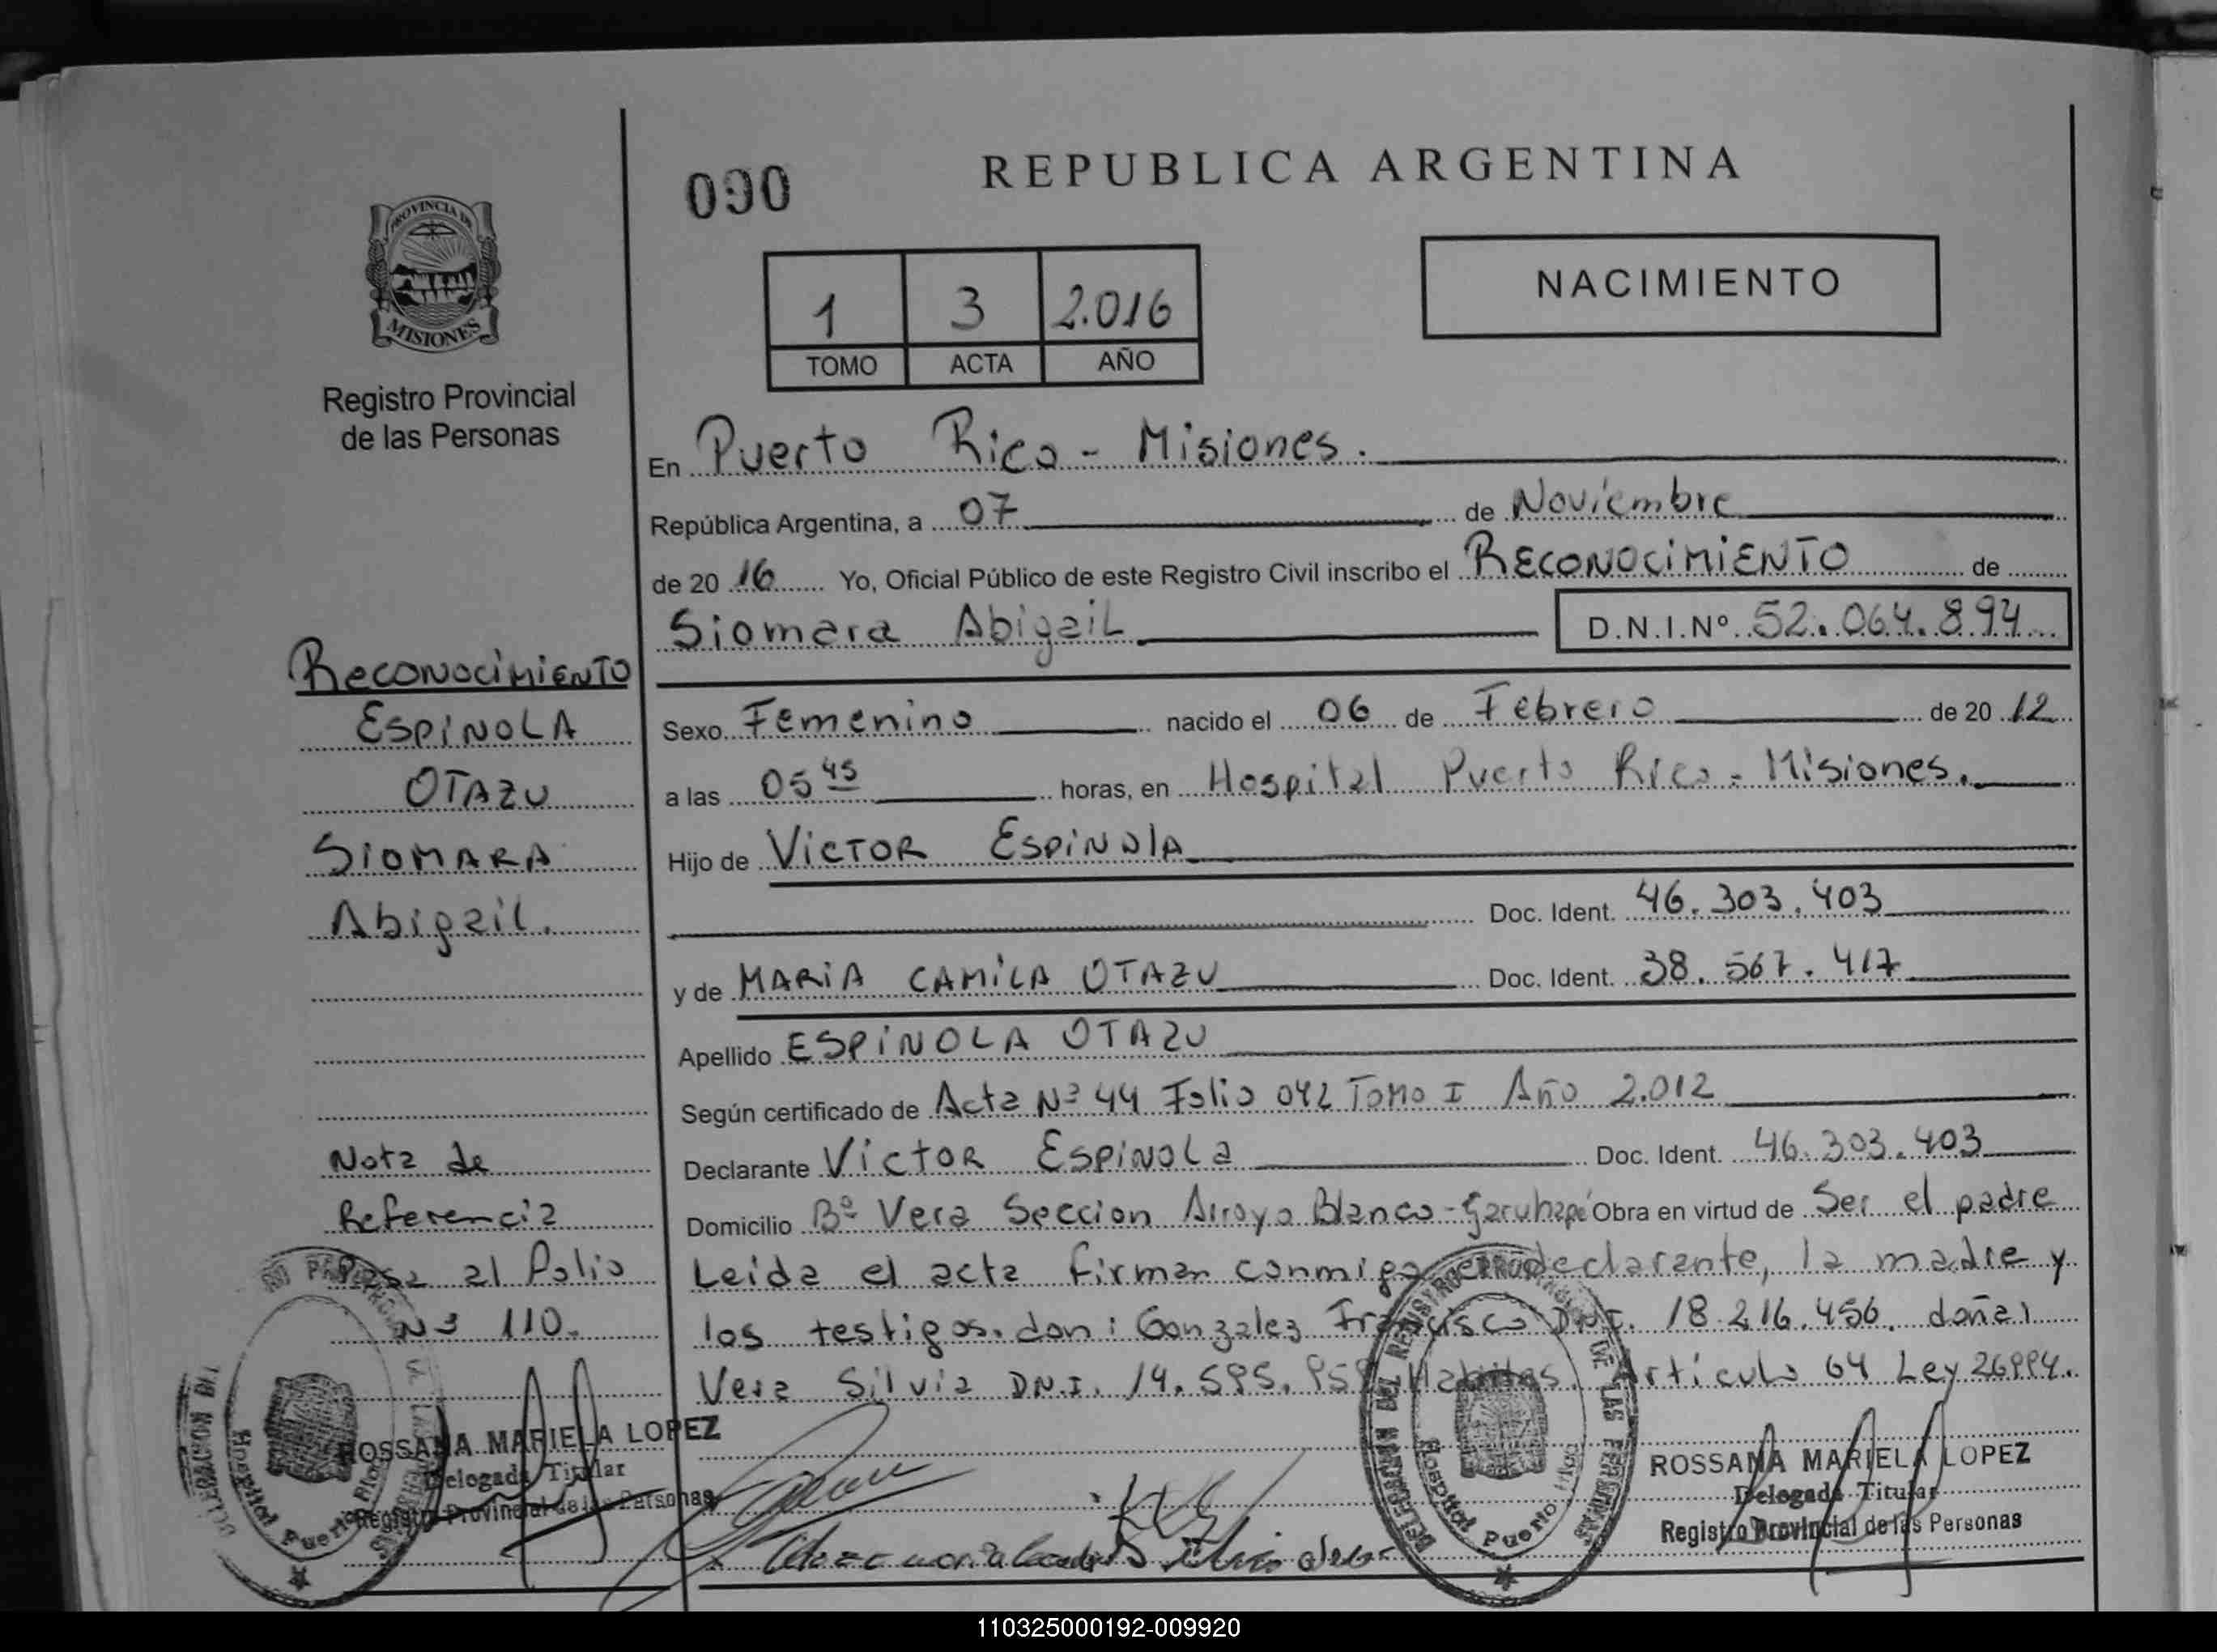 090
REPUBLICA ARGENTINA
PROVINCIA DE
MISIONES
Registro Provincial
de las Personas
1 3 2.016
TOMO ACTA AÑO
NACIMIENTO
En Puerto Rico - Misiones.
República Argentina, a 07 de Noviembre
de 20 16 Yo, Oficial Público de este Registro Civil inscribo el RECONOCIMIENTO de
Siomara Abigail D.N.I.Nº 52.064.894
Sexo Femenino nacido el 06 de Febrero de 20 12
a las 05 45 horas, en Hospital Puerto Rico - Misiones.
Hijo de VICTOR ESPINOLA
Doc. Ident. 46.303.403
y de MARIA CAMILA OTAZU Doc. Ident. 38.567.417
Apellido ESPINOLA OTAZU
Según certificado de Acta Nº 44 Folio 042 Tomo I Año 2.012
Declarante VICTOR ESPINOLA Doc. Ident. 46.303.403
Domicilio Bº Vera Seccion Arroyo Blanco - Garuhapé Obra en virtud de Ser el padre
Leida el acta firman conmigo el declarante, la madre y
los testigos. don: Gonzalez Francisco D.N.I. 18.216.456. doña:
Vera Silvia D.N.I. 14.595. Artículo 64 Ley 26994.
Reconocimiento
ESPINOLA
OTAZU
SIOMARA
Abigail.
Nota de
Referencia
Pasa al Folio
Nº 110.
ROSSANA MARIELA LOPEZ
Delegada Titular
Registro Provincial de las Personas
ROSSANA MARIELA LOPEZ
Delegada Titular
Registro Provincial de las Personas
DELEGACION DEL REGISTRO PROVINCIAL DE LAS PERSONAS
110325000192-009920